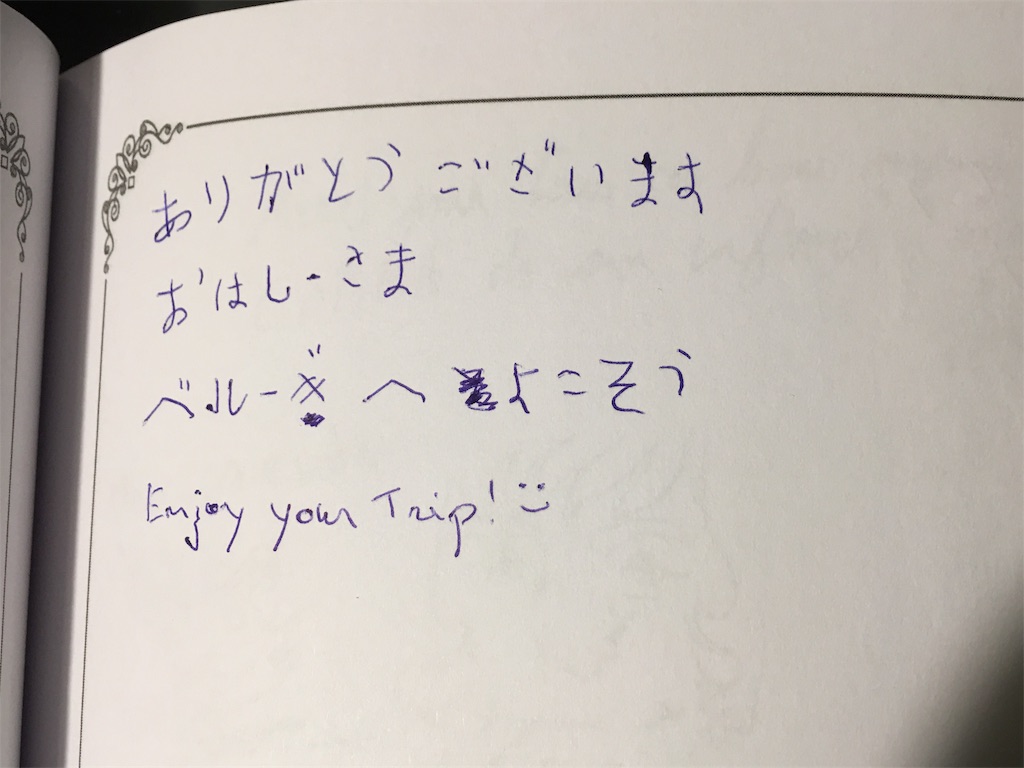 ありがとう ございます
おはしーさま
ベルーギ へ よこそう
Enjoy your Trip! :)